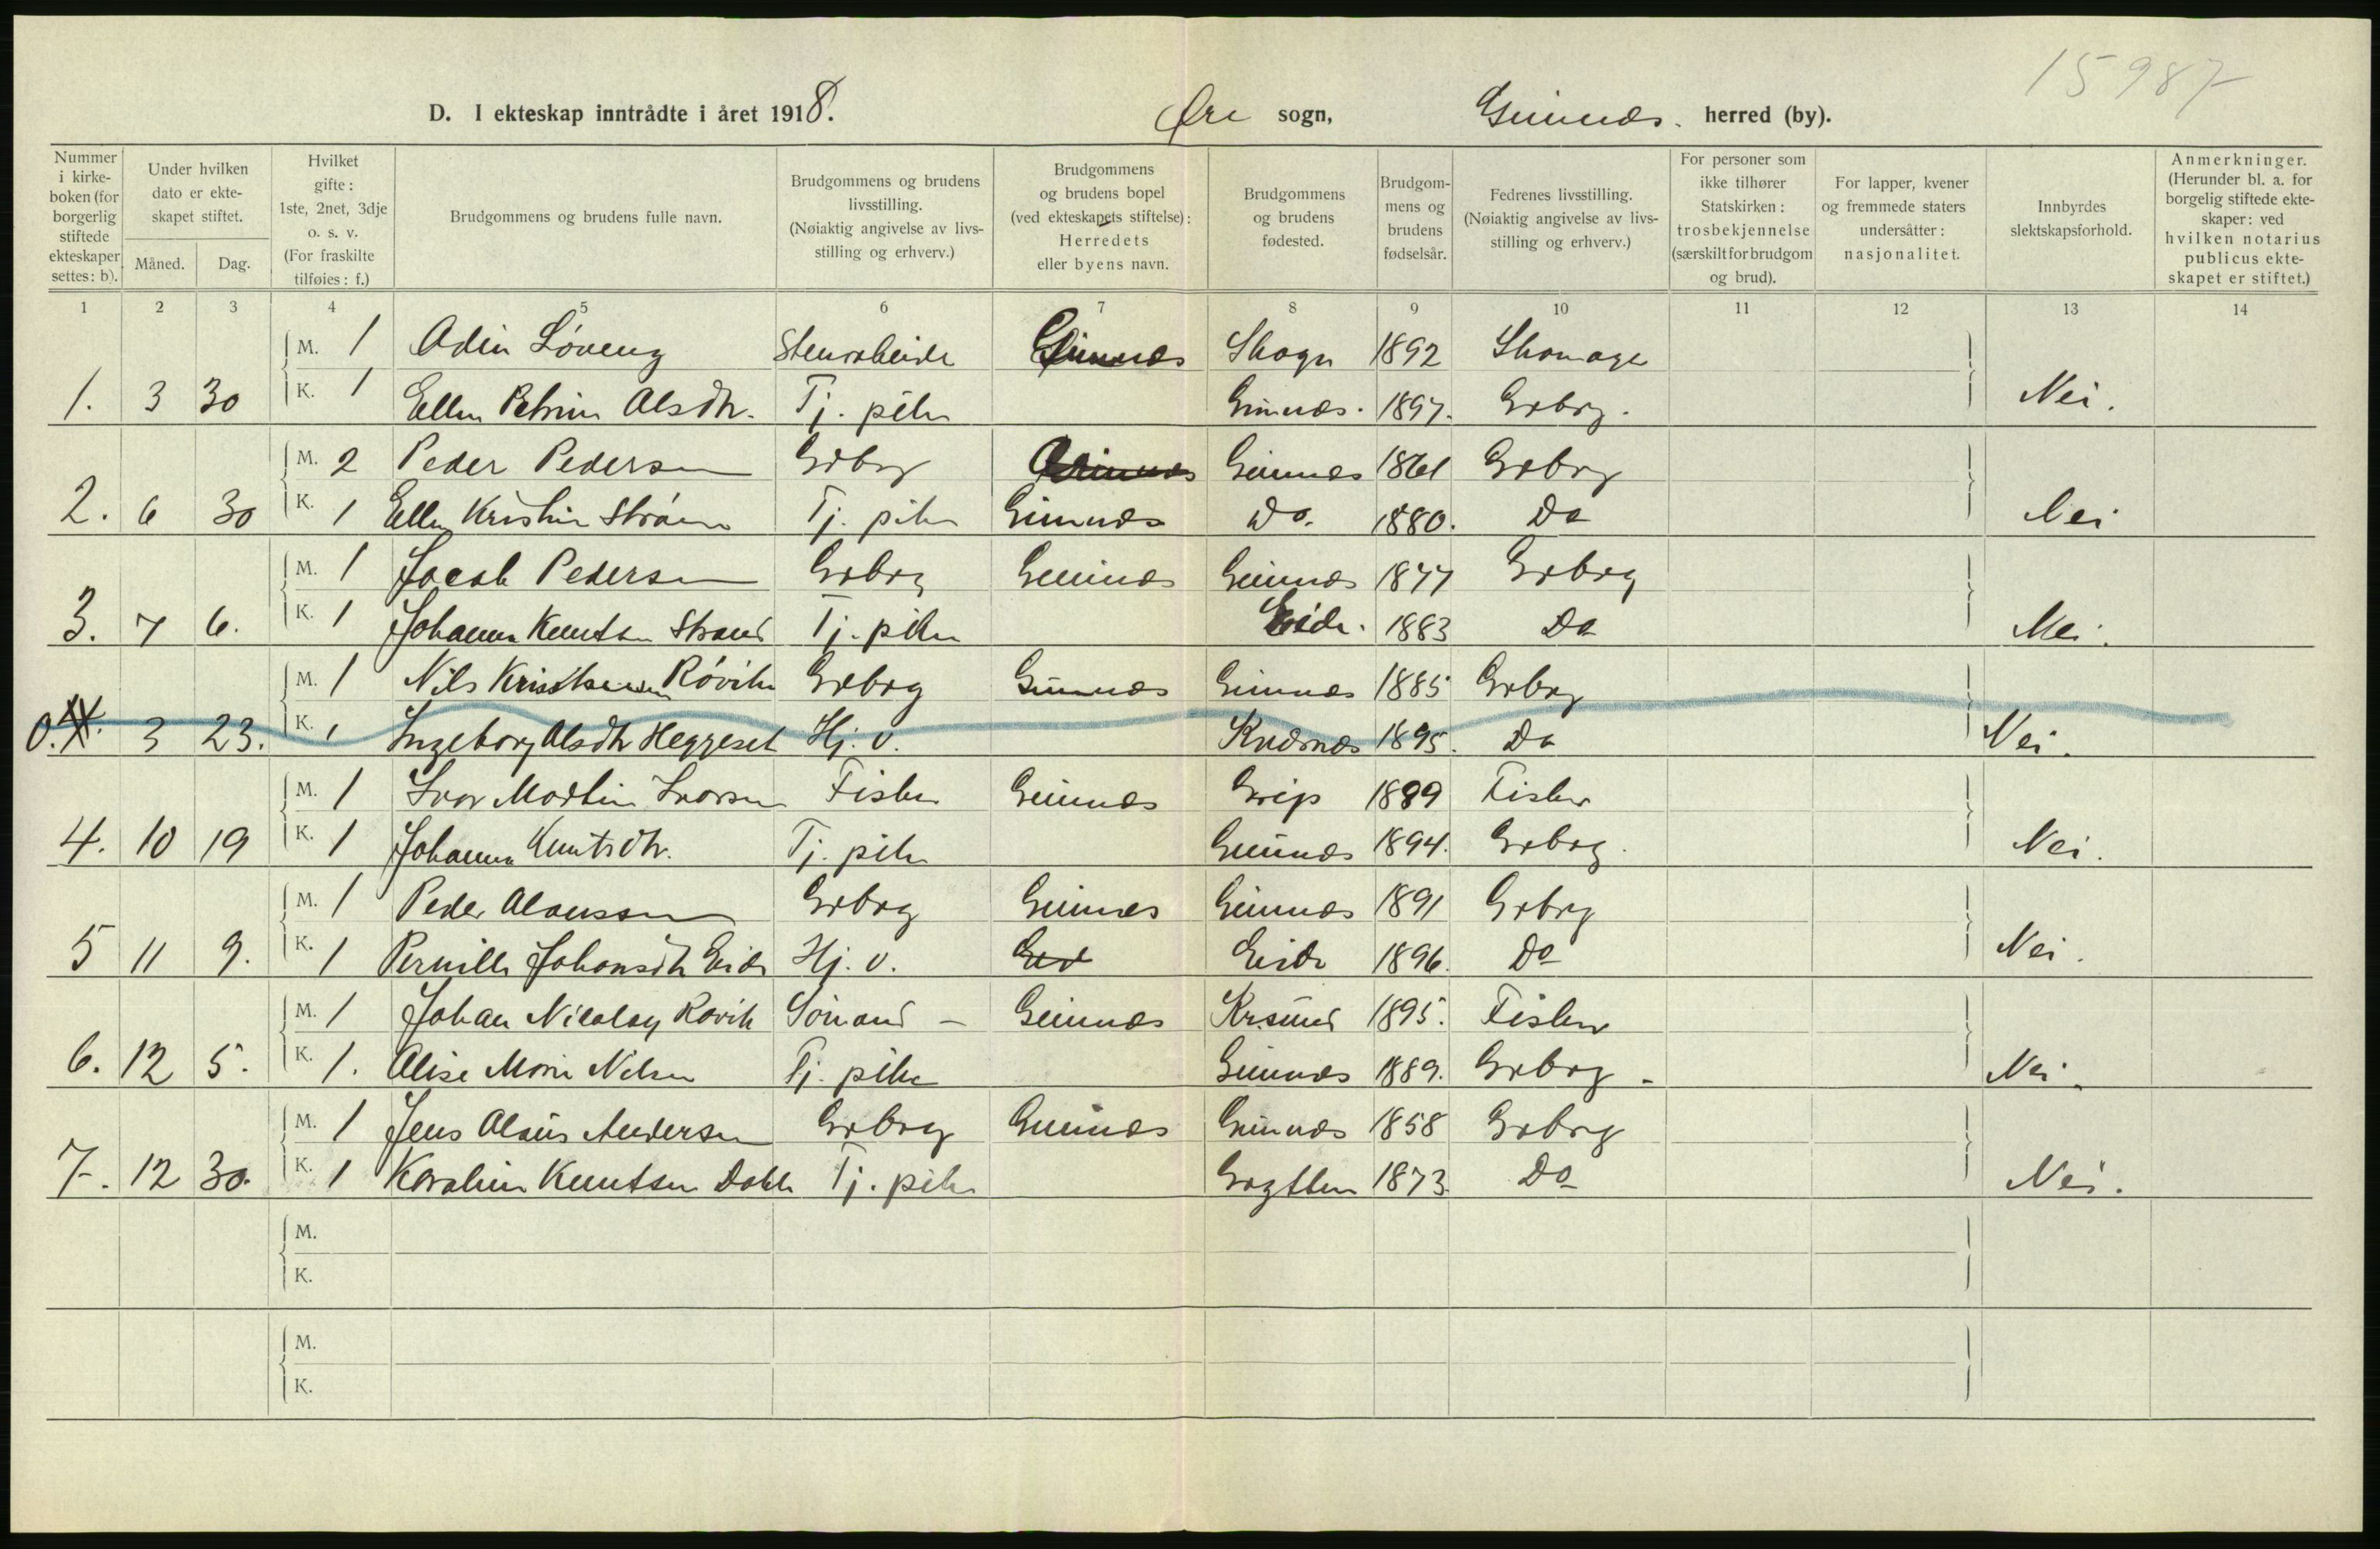 15987
D. I ekteskap inntrådte i året 1918. Øre sogn, Gimnæs. herred (by).
Nummer i kirkeboken (for borgerlig stiftede ekteskaper settes: b).
Under hvilken dato er ekteskapet stiftet.
Måned.
Dag.
Hvilket gifte: 1ste, 2net, 3dje o. s. v. (For fraskilte tilføies: f.)
Brudgommens og brudens fulle navn.
Brudgommens og brudens livsstilling. (Nøiaktig angivelse av livsstilling og erhverv.)
Brudgommens og brudens bopel (ved ekteskapets stiftelse): Herredets eller byens navn.
Brudgommens og brudens fødested.
Brudgommens og brudens fødselsår.
Fedrenes livsstilling. (Nøiaktig angivelse av livsstilling og erhverv.)
For personer som ikke tilhører Statskirken: trosbekjennelse (særskilt for brudgom og brud).
For lapper, kvener og fremmede staters undersåtter: nasjonalitet.
Innbyrdes slektskapsforhold.
Anmerkninger. (Herunder bl. a. for borgelig stiftede ekteskaper: ved hvilken notarius publicus ekteskapet er stiftet.)
1 2 3 4 5 6 7 8 9 10 11 12 13 14
M. 1 Odin Løveng Stenarbeide Gimnæs Skogn 1892 Skomager
1. 3 30 K. 1 Ellen Petrine Olsdtr. Tj. pike Gimnæs. 1897. Grbrg. Nei.
M. 2 Peder Pedersen Grbrg Gimnæs 1861 Grbrg
2. 6 30 K. 1 Ellen Kristine Strøm Tj. pike Gimnæs Do. 1880. Do Nei
M. 1 Jacob Pedersen Grbrg Gimnæs Gimnæs 1877 Grbrg
3. 7 6. K. 1 Johanna Knutsen Strand Tj. pike Eide. 1883 Do Nei.
M. 1 Nils Kristiansen Røvik Grbrg Gimnæs Gimnæs 1885 Grbrg
0. 3 23. K. 1 Ingeborg Olsdtr Heggeset Hj. v. Kvernes 1895. Do Nei.
M. 1 Ivar Martin Ivarsen Fisker Gimnæs Grip 1889 Fisker
4. 10 19 K. 1 Johanna Knutsdtr. Tj. pike Gimnæs 1894. Grbrg. Nei.
M. 1 Peder Olaussen Grbrg Gimnes Gimnæs 1891 Grbrg
5 11 9. K. 1 Pernille Johansdtr Eide Hj. v. Eide 1896. Do Nei.
M. 1 Johan Nicolay Røvik Sømand – Gimnæs Kr.sund 1895. Fisker
6. 12 5. K. 1. Alise Marie Nilsen Tj. pike Gimnæs 1889. Grbrg – Nei.
M. 1 Jens Olaus Andersen Grbrg Gimnæs Gimnæs 1858 Grbrg
7. 12 30. K. 1 Karoline Knutsen Dahle Tj. pike 1873. Do Nei.
M.
K.
M.
K.